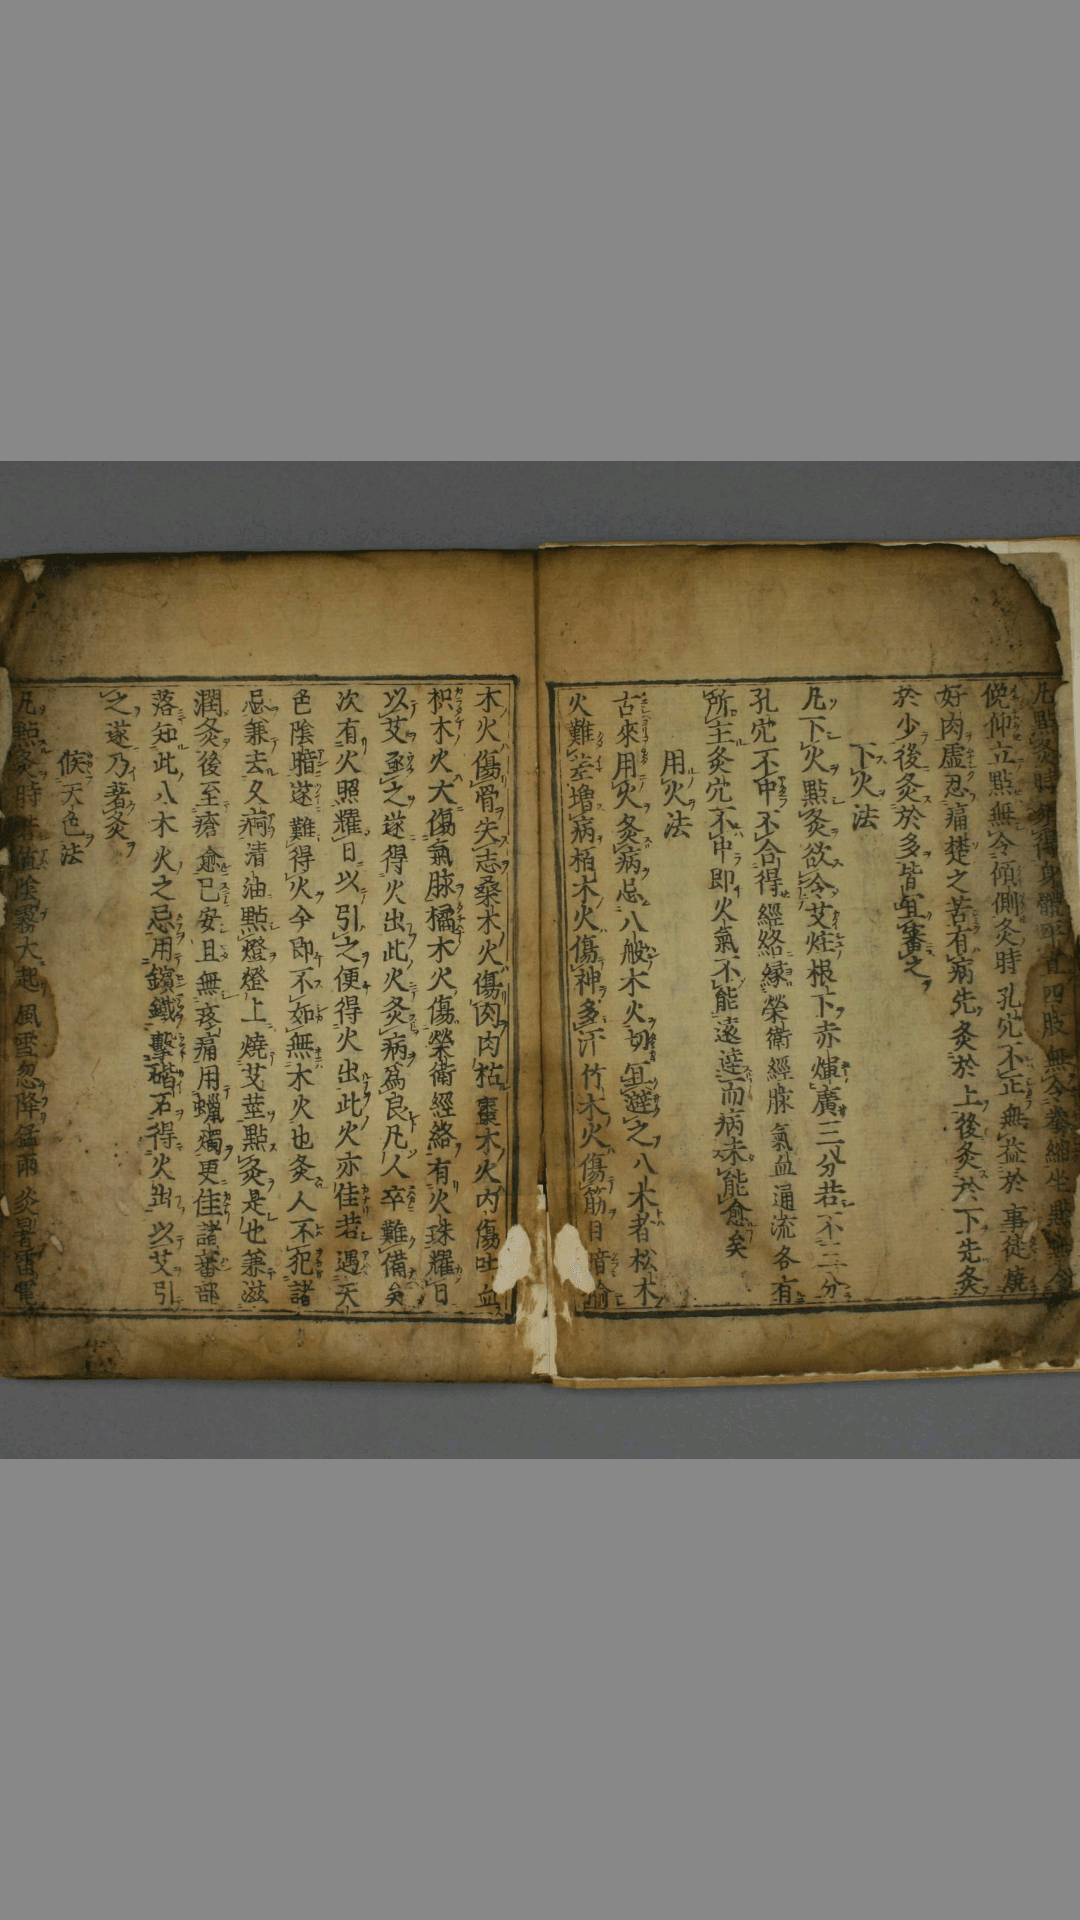 凡點灸時須得身體平直四肢無令拳縮坐點無令
俛仰立點無令傾側灸時孔穴不正無益於事徒燒
好肉虛忍痛楚之苦有病先灸於上後灸於下先灸
於少後灸於多皆宜審之
下火法
凡下火點灸欲令艾炷根下赤煇廣三分若不三分
孔穴不中不合得經絡縁榮衛經脉氣血通流各有
所主灸穴不中即火氣不能遠達而病未能愈矣
用火法
古來用火灸病忌八般木火切宜避之八木者松木
火難差増病栢木火傷神多汗竹木火傷筋目暗榆
木火傷骨失志桑木火傷肉肉枯棗木火内傷吐血
枳木火大傷氣脉橘木火傷榮衛經絡有火珠耀日
以艾丞之遂得火出此火灸病爲良凡人卒難備矣
次有火照耀日以引之便得火出此火亦佳若遇天
色陰暗遂難得火今即不如無木火也灸人不犯諸
忌兼去久痾清油點燈燈上燒艾莖點灸是也兼滋
潤灸後至瘡愈已安且無疼痛用蠟燭更佳諸蕃部
落知此八木火之忌用鑌鐵擊磖石得火出以艾引
之遂乃著灸
候天色法
凡點灸時 值陰霧大起風雪忽降猛雨炎暑雷電